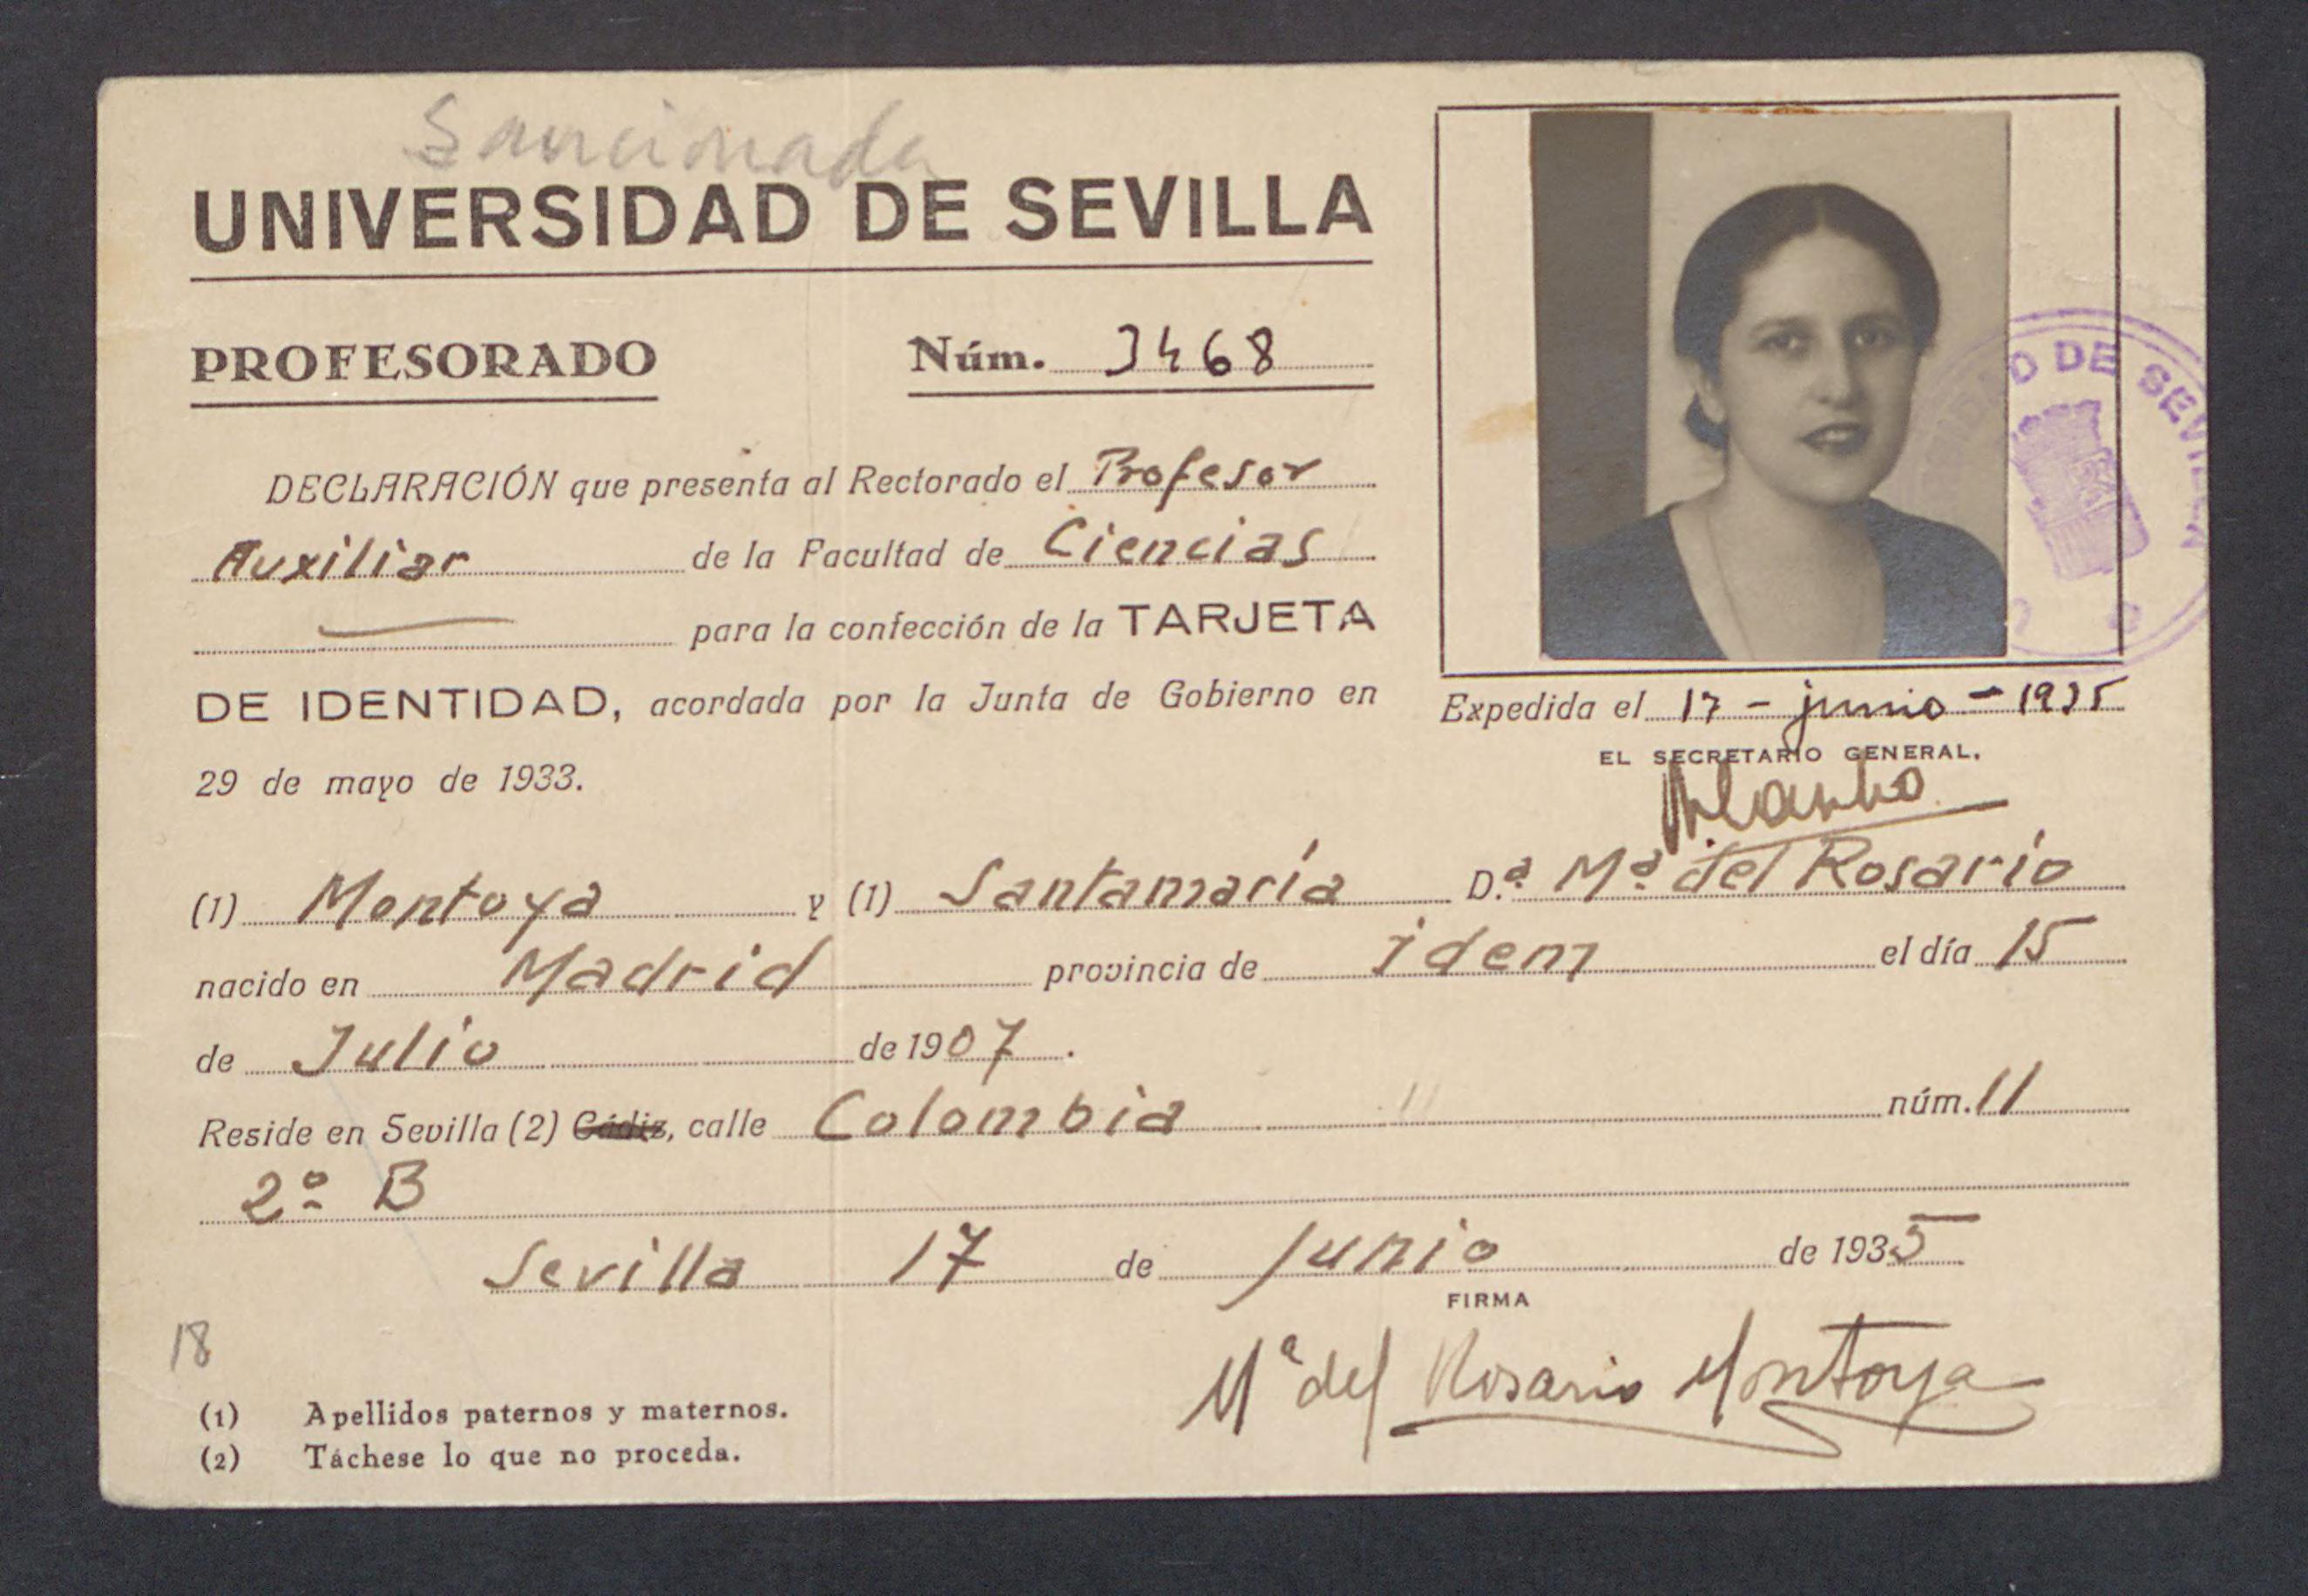 Sancionada
UNIVERSIDAD DE SEVILLA
PROFESORADO Núm. 3468
DECLARACIÓN que presenta al Rectorado el Profesor
Auxiliar de la Facultad de Ciencias
para la confección de la TARJETA
DE IDENTIDAD, acordada por la Junta de Gobierno en
29 de mayo de 1933.
DE SEVILLA
Expedida el 17 - junio - 1935
EL SECRETARIO GENERAL,
(1) Montoya y (1) Santamaría D.ª Mª del Rosario
nacido en Madrid provincia de idem el día 15
de Julio de 1907.
Reside en Sevilla (2) Cádiz, calle Colombia núm. 11
2º B
Sevilla 17 de junio de 1935
FIRMA
Mª del Rosario Montoya
18
(1) Apellidos paternos y maternos.
(2) Táchese lo que no proceda.